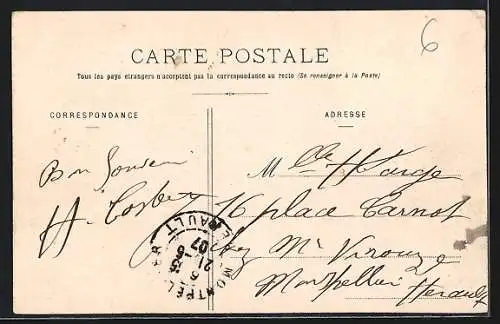 6
CARTE POSTALE
Tous les pays étrangers n'acceptent pas la correspondance au recto (Se renseigner à la Poste)
CORRESPONDANCE
ADRESSE
Bon Souvenir
Mlle
16 place Carnot
chez Mr
Montpellier
Hérault
MONTPELLIER
HERAULT
21
07